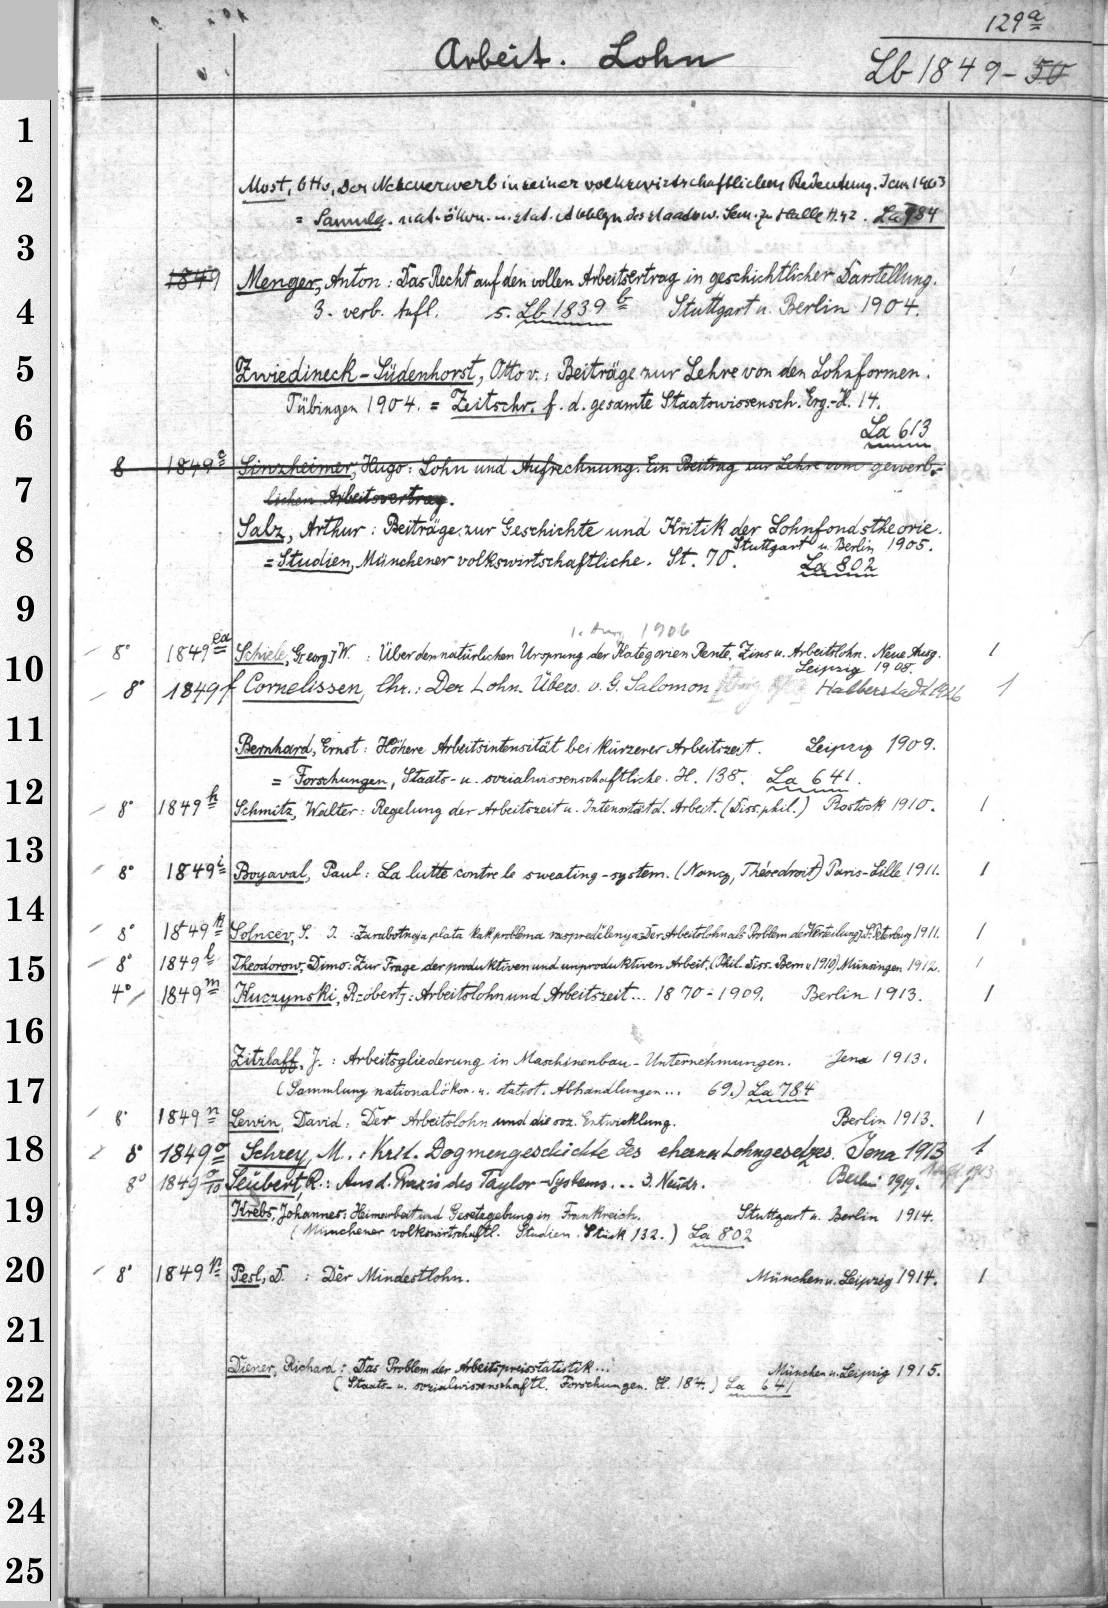 129a
Arbeit. Lohn
Lb 1849-50
1
2
Most, Otto, Der Nebenerwerb in seiner volkswirtschaftlichen Bedeutung. Jena 1903
= Sammlg. nat.-ökon. u. stat. Abhblgn. des staatsw. Sem. zu Halle H. 42. La 784
3
1849 Menger, Anton: Das Recht auf den vollen Arbeitsertrag in geschichtlicher Darstellung.
4
3. verb. Aufl. s. Lb 1839 b Stuttgart u. Berlin 1904.
5
Zwiedineck-Südenhorst, Otto v.: Beiträge zur Lehre von den Lohnformen.
Tübingen 1904. = Zeitschr. f. d. gesamte Staatswissensch. Erg.-H. 14.
6
La 613
8 1849 e Sinzheimer, Hugo: Lohn und Aufrechnung. Ein Beitrag zur Lehre vom gewerb-
7
lichen Arbeitsvertrag.
Salz, Arthur: Beiträge zur Geschichte und Kritik der Lohnfondstheorie.
8
Stuttgart u. Berlin 1905.
= Studien, Münchener volkswirtschaftliche. St. 70. La 802
9
1906
8° 1849 ea Schiele, G[eorg] W. : Über den natürlichen Ursprung der Kategorien Rente, Zins u. Arbeitslohn. Neue Ausg. 1
10
Leipzig 1908.
8° 1849 f Cornelissen, Chr.: Der Lohn. Übers. v. G. Salomon Halberstadt 1926 1
11
Bernhard, Ernst: Höhere Arbeitsintensität bei kürzerer Arbeitszeit. Leipzig 1909.
= Forschungen, Staats- u. sozialwissenschaftliche. H. 138. La 641.
12
8° 1849 h Schmitz, Walter: Regelung der Arbeitszeit u. Intensität d. Arbeit. (Diss. phil.) Rostock 1910. 1
13
8° 1849 i Boyaval, Paul: La lutte contre le sweating-system. (Nancy, Thèse droit) Paris-Lille 1911. 1
14
8° 1849 k Solncev, S. I. : Zarabotnaja plata kak problema raspredělenija. [Der Arbeitslohn als Problem der Verteilung]. S. Peterburg 1911. 1
15
8° 1849 l Theodorow, Dimo: Zur Frage der produktiven und unproduktiven Arbeit. (Phil. Diss. Bern v. 1910) Münsingen 1912. 1
4° 1849 m Kuczynski, R[obert]: Arbeitslohn und Arbeitszeit... 1870-1909. Berlin 1913. 1
16
Zitzlaff, J. : Arbeitsgliederung in Maschinenbau-Unternehmungen. Jena 1913.
17
(Sammlung nationalökon. u. statist. Abhandlungen... 69.) La 784
8° 1849 n Lewin, David: Der Arbeitslohn und die soz. Entwicklung. Berlin 1913. 1
18
8° 1849 o Schrey, M. : Krit. Dogmengeschichte des ehernen Lohngesetzes. Jena 1913 1
8° 1849 o/10 Seubert, R.: Aus d. Praxis des Taylor-Systems... 3. Neudr. Berlin 1919.
19
Krebs, Johannes: Heimarbeit und Gesetzgebung in Frankreich. Stuttgart u. Berlin 1914.
(Münchener volkswirtschaftl. Studien. Stück 132.) La 802
20
8° 1849 p Pesl, D. : Der Mindestlohn. München u. Leipzig 1914. 1
21
Diener, Richard: Das Problem der Arbeitspreisstatistik... München u. Leipzig 1915.
22
(Staats- u. sozialwissenschaftl. Forschungen. H. 184.) La 641
23
24
25